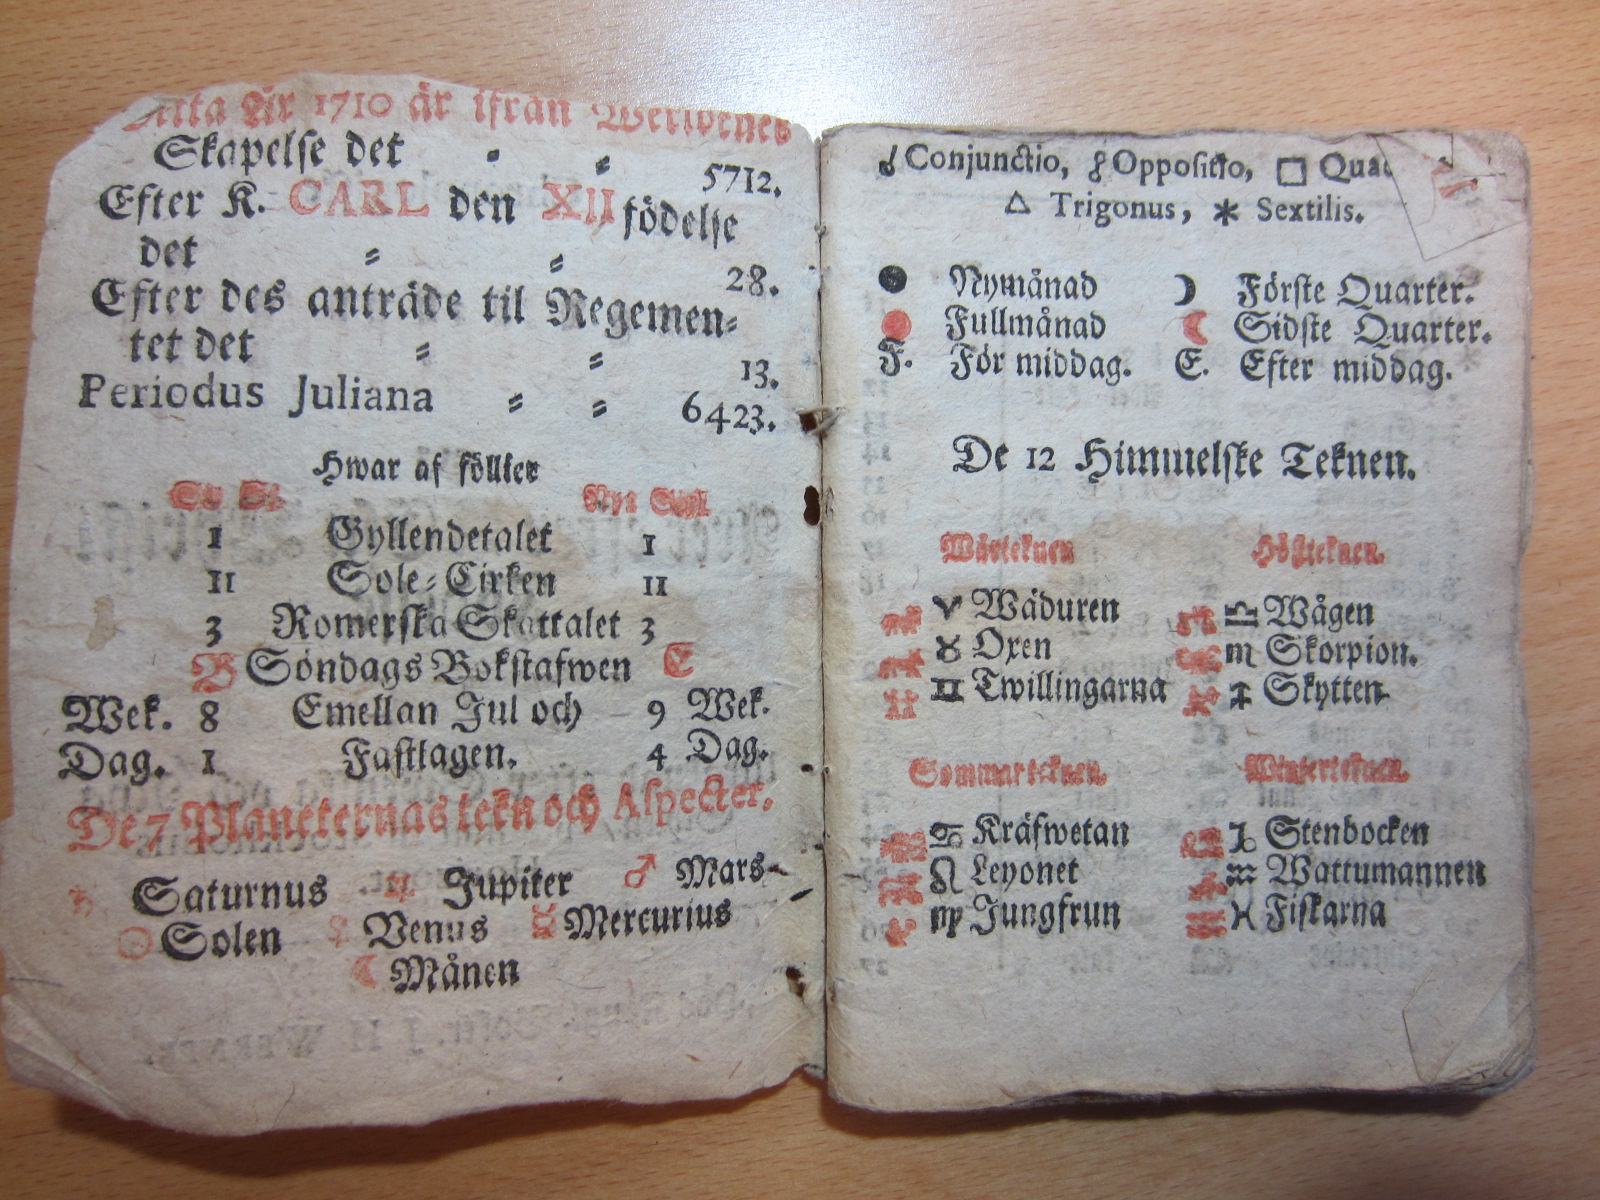 År 1710 är ifrån Werldenes
Skapelse det 5712.
Efter K. CARL den XII födelse
det 28.
Efter des anträde til Regemen-
tet det 13.
Periodus Juliana 6423.
Hwar af föllier
Nya Styl
1 Gyllendetalet 1
11 Sole-Cirken 11
3 Romerska Skattalet 3
B Söndags Bokstafwen E
Wek. 8 Emellan Jul och 9 Wek.
Dag. 1 Fastlagen. 4 Dag.
De 7 Planeternas tekn och Aspecter.
♄ Saturnus ♃ Jupiter ♂ Mars
☉ Solen ♀ Venus ☿ Mercurius
☾ Månen
☌ Conjunctio, ☍ Oppositio, □
△ Trigonus, * Sextilis.
● Nymånad ☽ Förste Quarter.
● Fullmånad ☾ Sidste Quarter.
F. För middag. E. Efter middag.
De 12 Himmelske Teknen.
Wårteknen Höstteknen.
♈ Wäduren ♎ Wågen
♉ Oxen ♏ Skorpion.
♊ Twillingarna ♐ Skytten
Sommarteknen. Winterteknen.
♋ Kräfwetan ♑ Stenbocken
♌ Leyonet ♒ Wattumannen
♍ Jungfrun ♓ Fiskarna